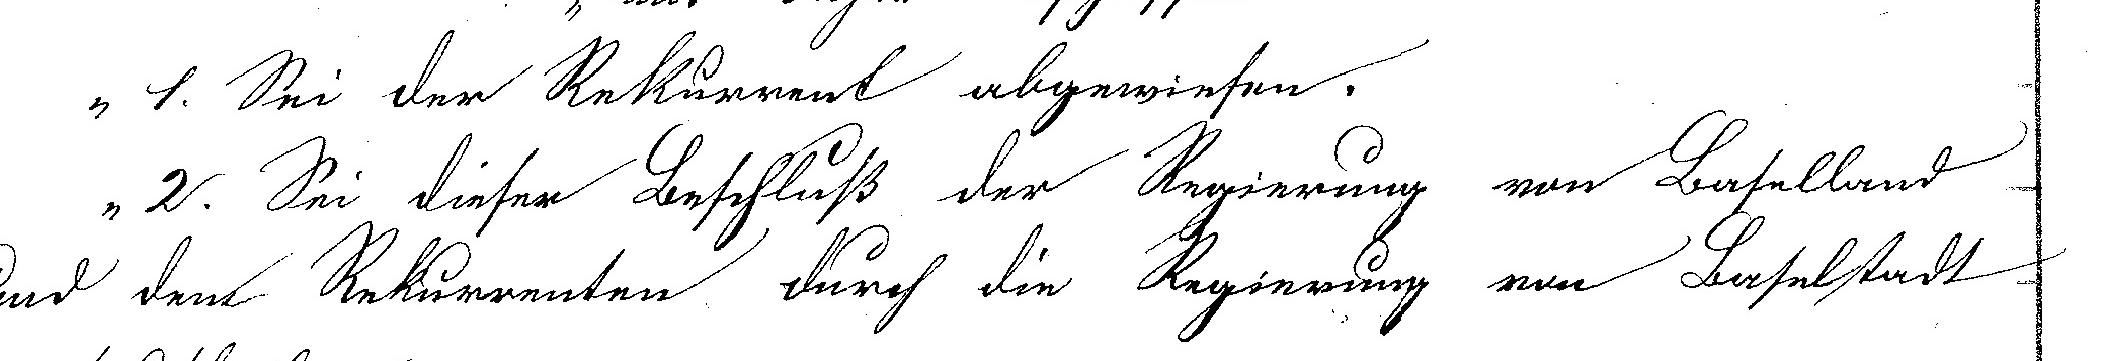 „ 1. Sei der Rekurrent abgewiesen.
„ 2. Sei dieser Beschluß der Regierung von Baselland
und dem Rekurrenten durch die Regierung von Baselstadt